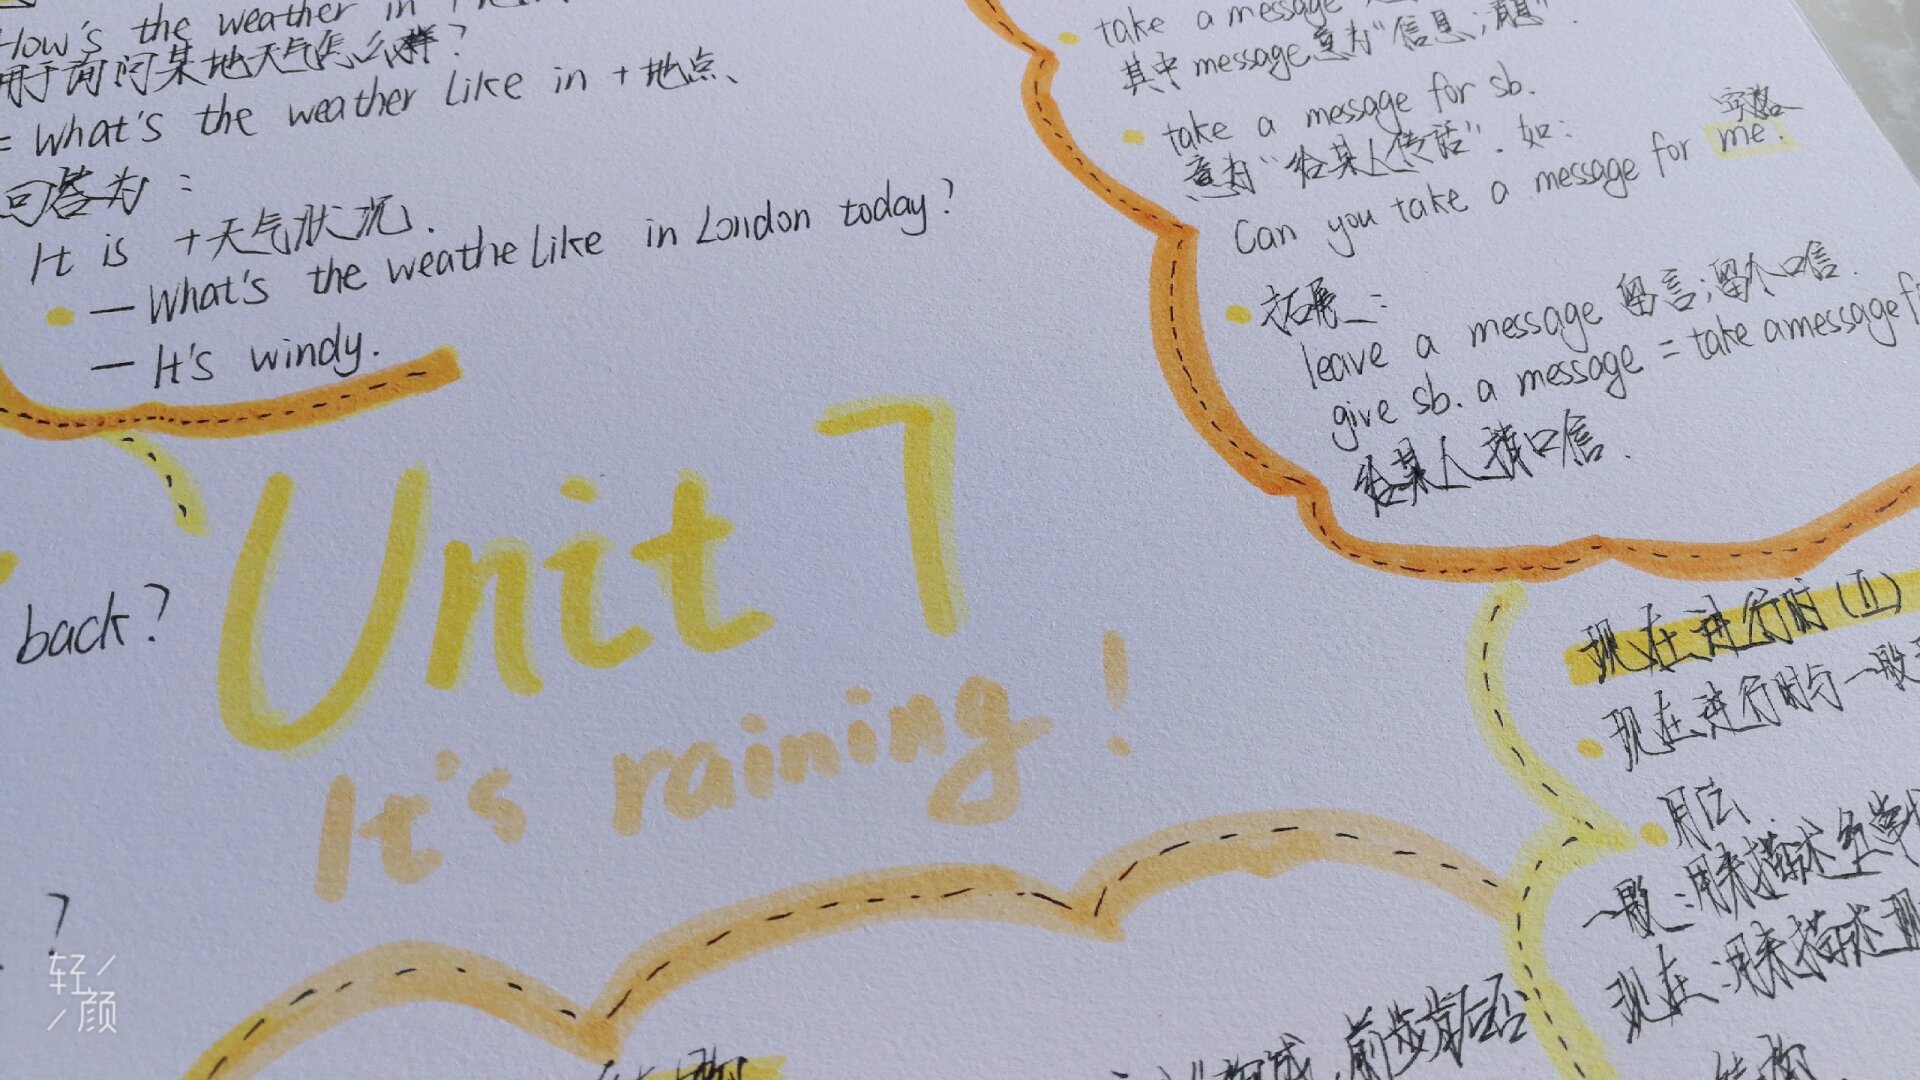 How's the weather in
用于询问某地天气怎么样?
= What's the weather like in +地点、
回答为:
It is +天气状况.
— What's the weathe like in London today?
— It's windy.
take a message
其中 message 意为“信息;消息”.
take a message for sb.
意为“给某人传话”. 如:
宾格
Can you take a message for me.
拓展:
leave a message 留言;留个口信.
give sb. a message = take a message f
给某人捎口信.
Unit 7
It's raining!
back?
?
现在进行时(II)
现在进行时与一般
用法
一般:用来描述
现在:用来描述现
结构
轻颜